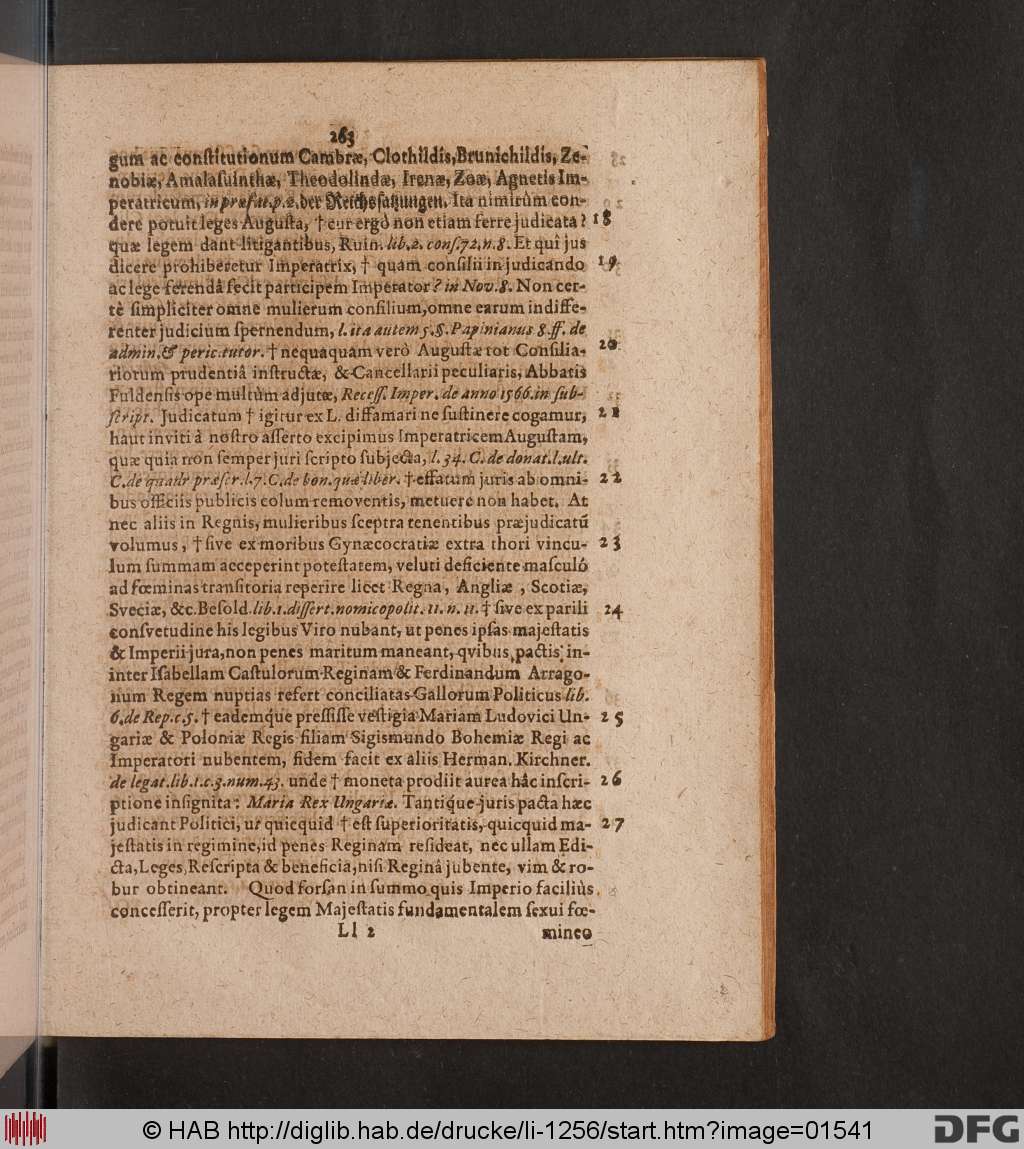 263
gum ac conſtitutionum Cambræ, Clothildis, Brunichildis, Ze-
nobiæ, Amalaſuinthæ, Theodolindæ, Irenæ, Zoæ, Agnetis Im-
peratricum, in præfat. p. 2. der Reichsſatzungen. Ita nimirùm con-
dere potuit leges Auguſta, † cur ergò non etiam ferre judicata? 18
quæ legem dant litigantibus, Ruin. lib. 2. conſ. 72. n. 8. Et quî jus
dicere prohiberetur Imperatrix, † quam conſilii in judicando 19
ac lege ferendâ fecit participem Imperator? in Nov. 8. Non cer-
tè ſimpliciter omne mulierum conſilium, omne earum indiffe-
renter judicium ſpernendum, l. ita autem 5. §. Papinianus 8. ff. de
admin. & peric. tutor. † nequaquam verò Auguſtæ tot Conſilia- 20
riorum prudentiâ inſtructæ, & Cancellarii peculiaris, Abbatis
Fuldenſis ope multùm adjutæ, Receſſ. Imper. de anno 1566. in ſub-
ſcript. Judicatum † igitur ex L. diffamari ne ſuſtinere cogamur, 21
haut inviti â noſtro aſſerto excipimus Imperatricem Auguſtam,
quæ quia non ſemper juri ſcripto ſubjecta, l. 34. C. de donat. l. ult.
C. de quadr præſcr. l. 7. C. de bon. quæ liber. † effatum juris ab omni- 22
bus officiis publicis eolum removentis, metuere non habet. At
nec aliis in Regnis, mulieribus ſceptra tenentibus præjudicatū
volumus, † ſive ex moribus Gynæcocratiæ extra thori vincu- 23
lum ſummam acceperint poteſtatem, veluti deficiente maſculô
ad fœminas tranſitoria reperire licet Regna, Angliæ, Scotiæ,
Sveciæ, &c. Beſold. lib. 1. diſſert. nomicopolit. 11. n. 11. † ſive ex parili 24
conſvetudine his legibus Viro nubant, ut penes ipſas majeſtatis
& Imperii jura, non penes maritum maneant, qvibus pactis in-
inter Iſabellam Caſtulorum Reginam & Ferdinandum Arrago-
num Regem nuptias refert conciliatas Gallorum Politicus lib.
6. de Rep. c. 5. † eademq́ue preſſiſſe veſtigia Mariam Ludovici Un- 25
gariæ & Poloniæ Regis filiam Sigismundo Bohemiæ Regi ac
Imperatori nubentem, fidem facit ex aliis Herman. Kirchner.
de legat. lib. 1. c. 3. num. 43. unde † moneta prodiit aurea hâc inſcri- 26
ptione inſignita: Maria Rex Ungariæ. Tantiq́ue juris pacta hæc
judicant Politici, ut quicquid † eſt ſuperioritatis, quicquid ma- 27
jeſtatis in regimine, id penes Reginam reſideat, nec ullam Edi-
cta, Leges, Reſcripta & beneficia, niſi Reginâ jubente, vim & ro-
bur obtineant. Quod forſan in ſummo quis Imperio faciliùs
conceſſerit, propter legem Majeſtatis fundamentalem ſexui fœ-
Ll 2 mineo
© HAB http://diglib.hab.de/drucke/li-1256/start.htm?image=01541
DFG